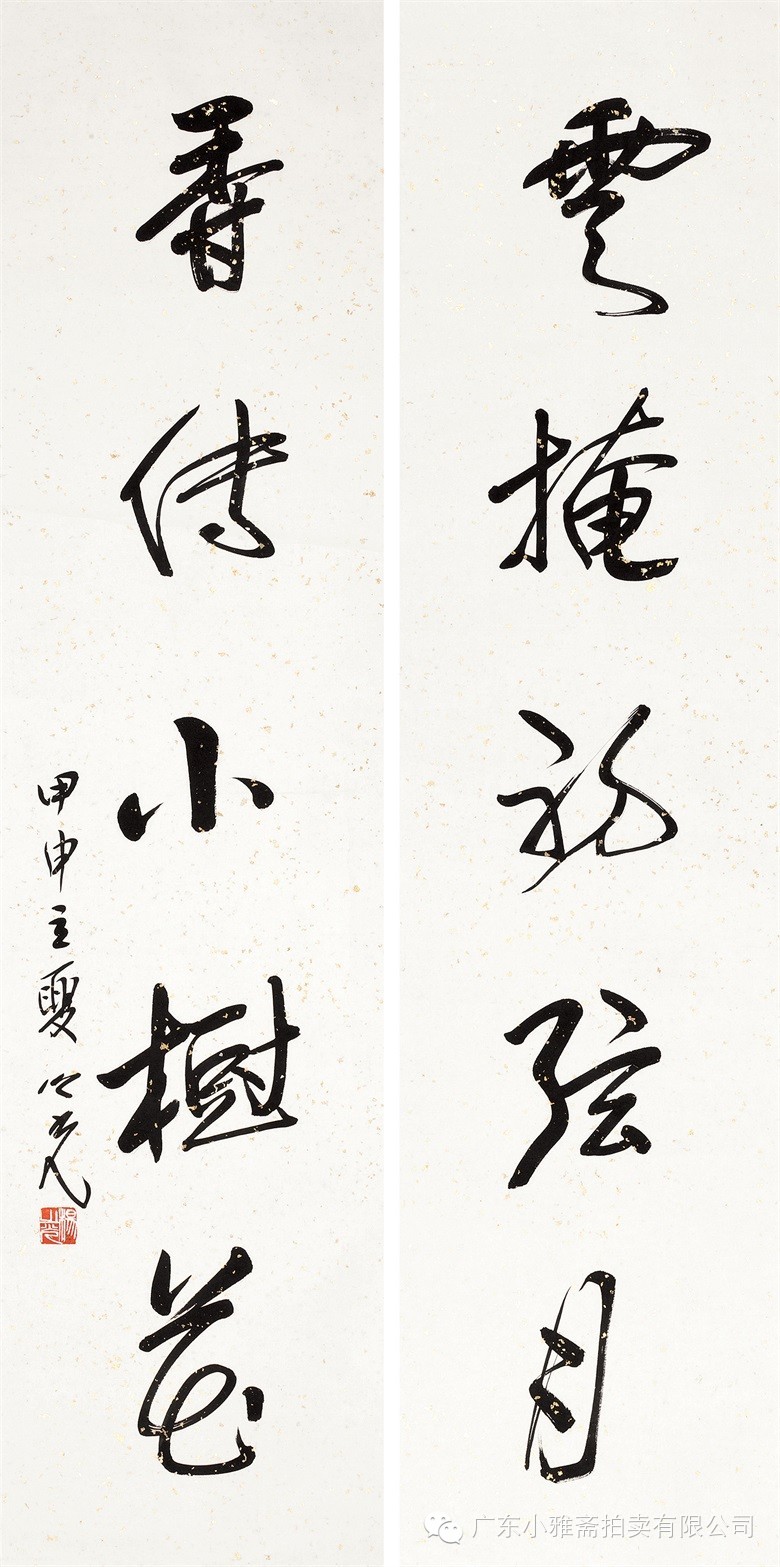 雲掩初弦月
香傳小樹花
甲申立夏 之光
楊之光
广东小雅斋拍卖有限公司